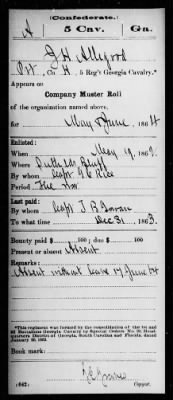 (Confederate.)
A 5 Cav. Ga.
J H Allgood
Pvt, Co. H, 5 Reg't Georgia Cavalry.*
Appears on
Company Muster Roll
of the organization named above,
for May & June, 1864
Enlisted:
When May 19, 186
Where
By whom Capt G C Rice
Period The War
Last paid:
By whom Capt J B
To what time Dec 31, 1863.
Bounty paid $ 100; due $ 100
Present or absent Absent
Remarks:
Absent without leave 17 June 64
*This regiment was formed by the consolidation of the 1st and
2d Battalions Georgia Cavalry by Special Orders No. 20, Head-
quarters District of Georgia, South Carolina and Florida, dated
January 20, 1863.
Book mark:
(642)
Copyist.